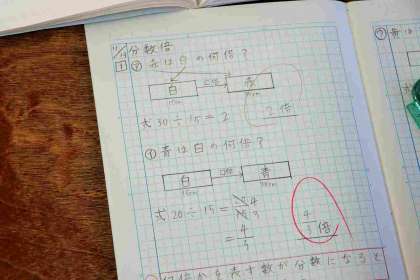 11/19 分数倍
1 ア 赤は白の何倍?
白 □倍 赤
15cm 30cm
式 30÷15=2 2倍
イ 青は白の何倍?
白 □倍 青
15cm 20cm
式 20÷15=20/15 4 3
=4/3 4/3倍
何倍かを表す数が分数になると